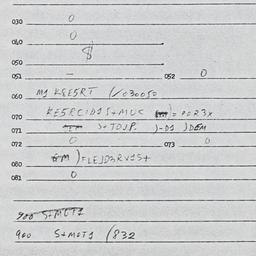 030 0
040 0
$
050
051 - 052 0
060 M1 KSESRT (/030050
070 KESRCID1S+MUC = PO23X
071 S+TOJP. )-D1 )DEM
072 0 073 0
080 )FLEJD3RV1S+
081 0
900 S+MOT1
900 S+MOT1 (832